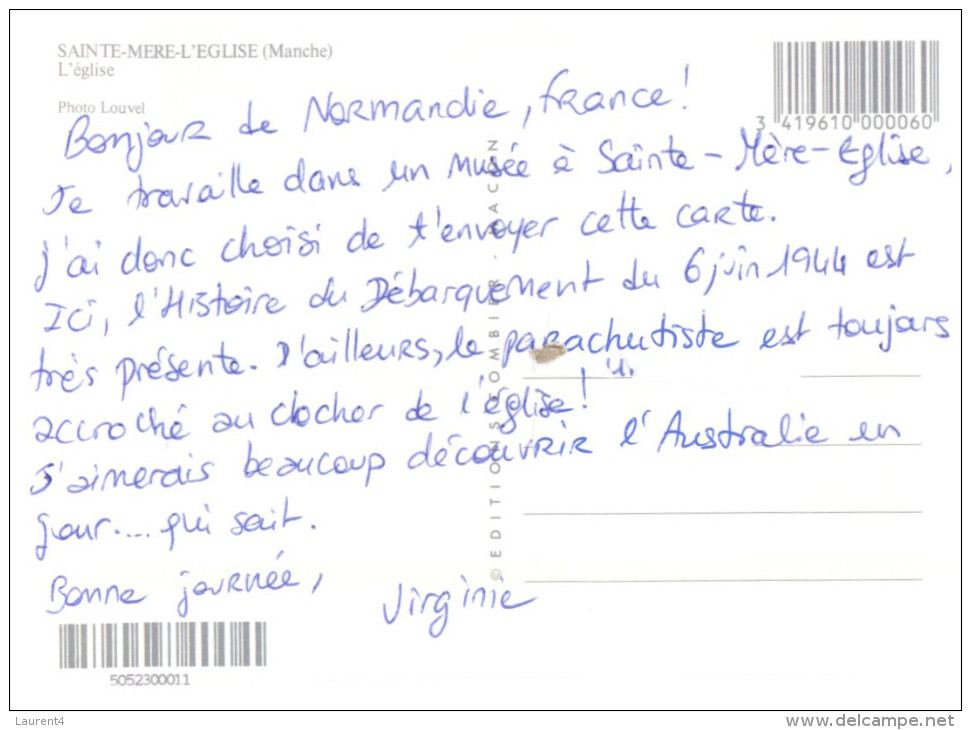 SAINTE-MERE-L'EGLISE (Manche)
L'église
Photo Louvel
3 419610 000060
Bonjour de Normandie, France!
Je travaille dans un musée à Sainte-Mère-Eglise,
j'ai donc choisi de t'envoyer cette carte.
Ici, l'Histoire du Débarquement du 6 juin 1944 est
très présente. D'ailleurs, le parachutiste est toujours
accroché au clocher de l'église!
J'aimerais beaucoup découvrir l'Australie un
jour.... qui sait.
Bonne journée,
Virginie
© EDITIONS GOMBIER - MACON
5052300011
Laurent4
www.delcampe.net